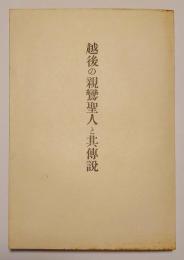 越後の親鸞聖人と其傳説